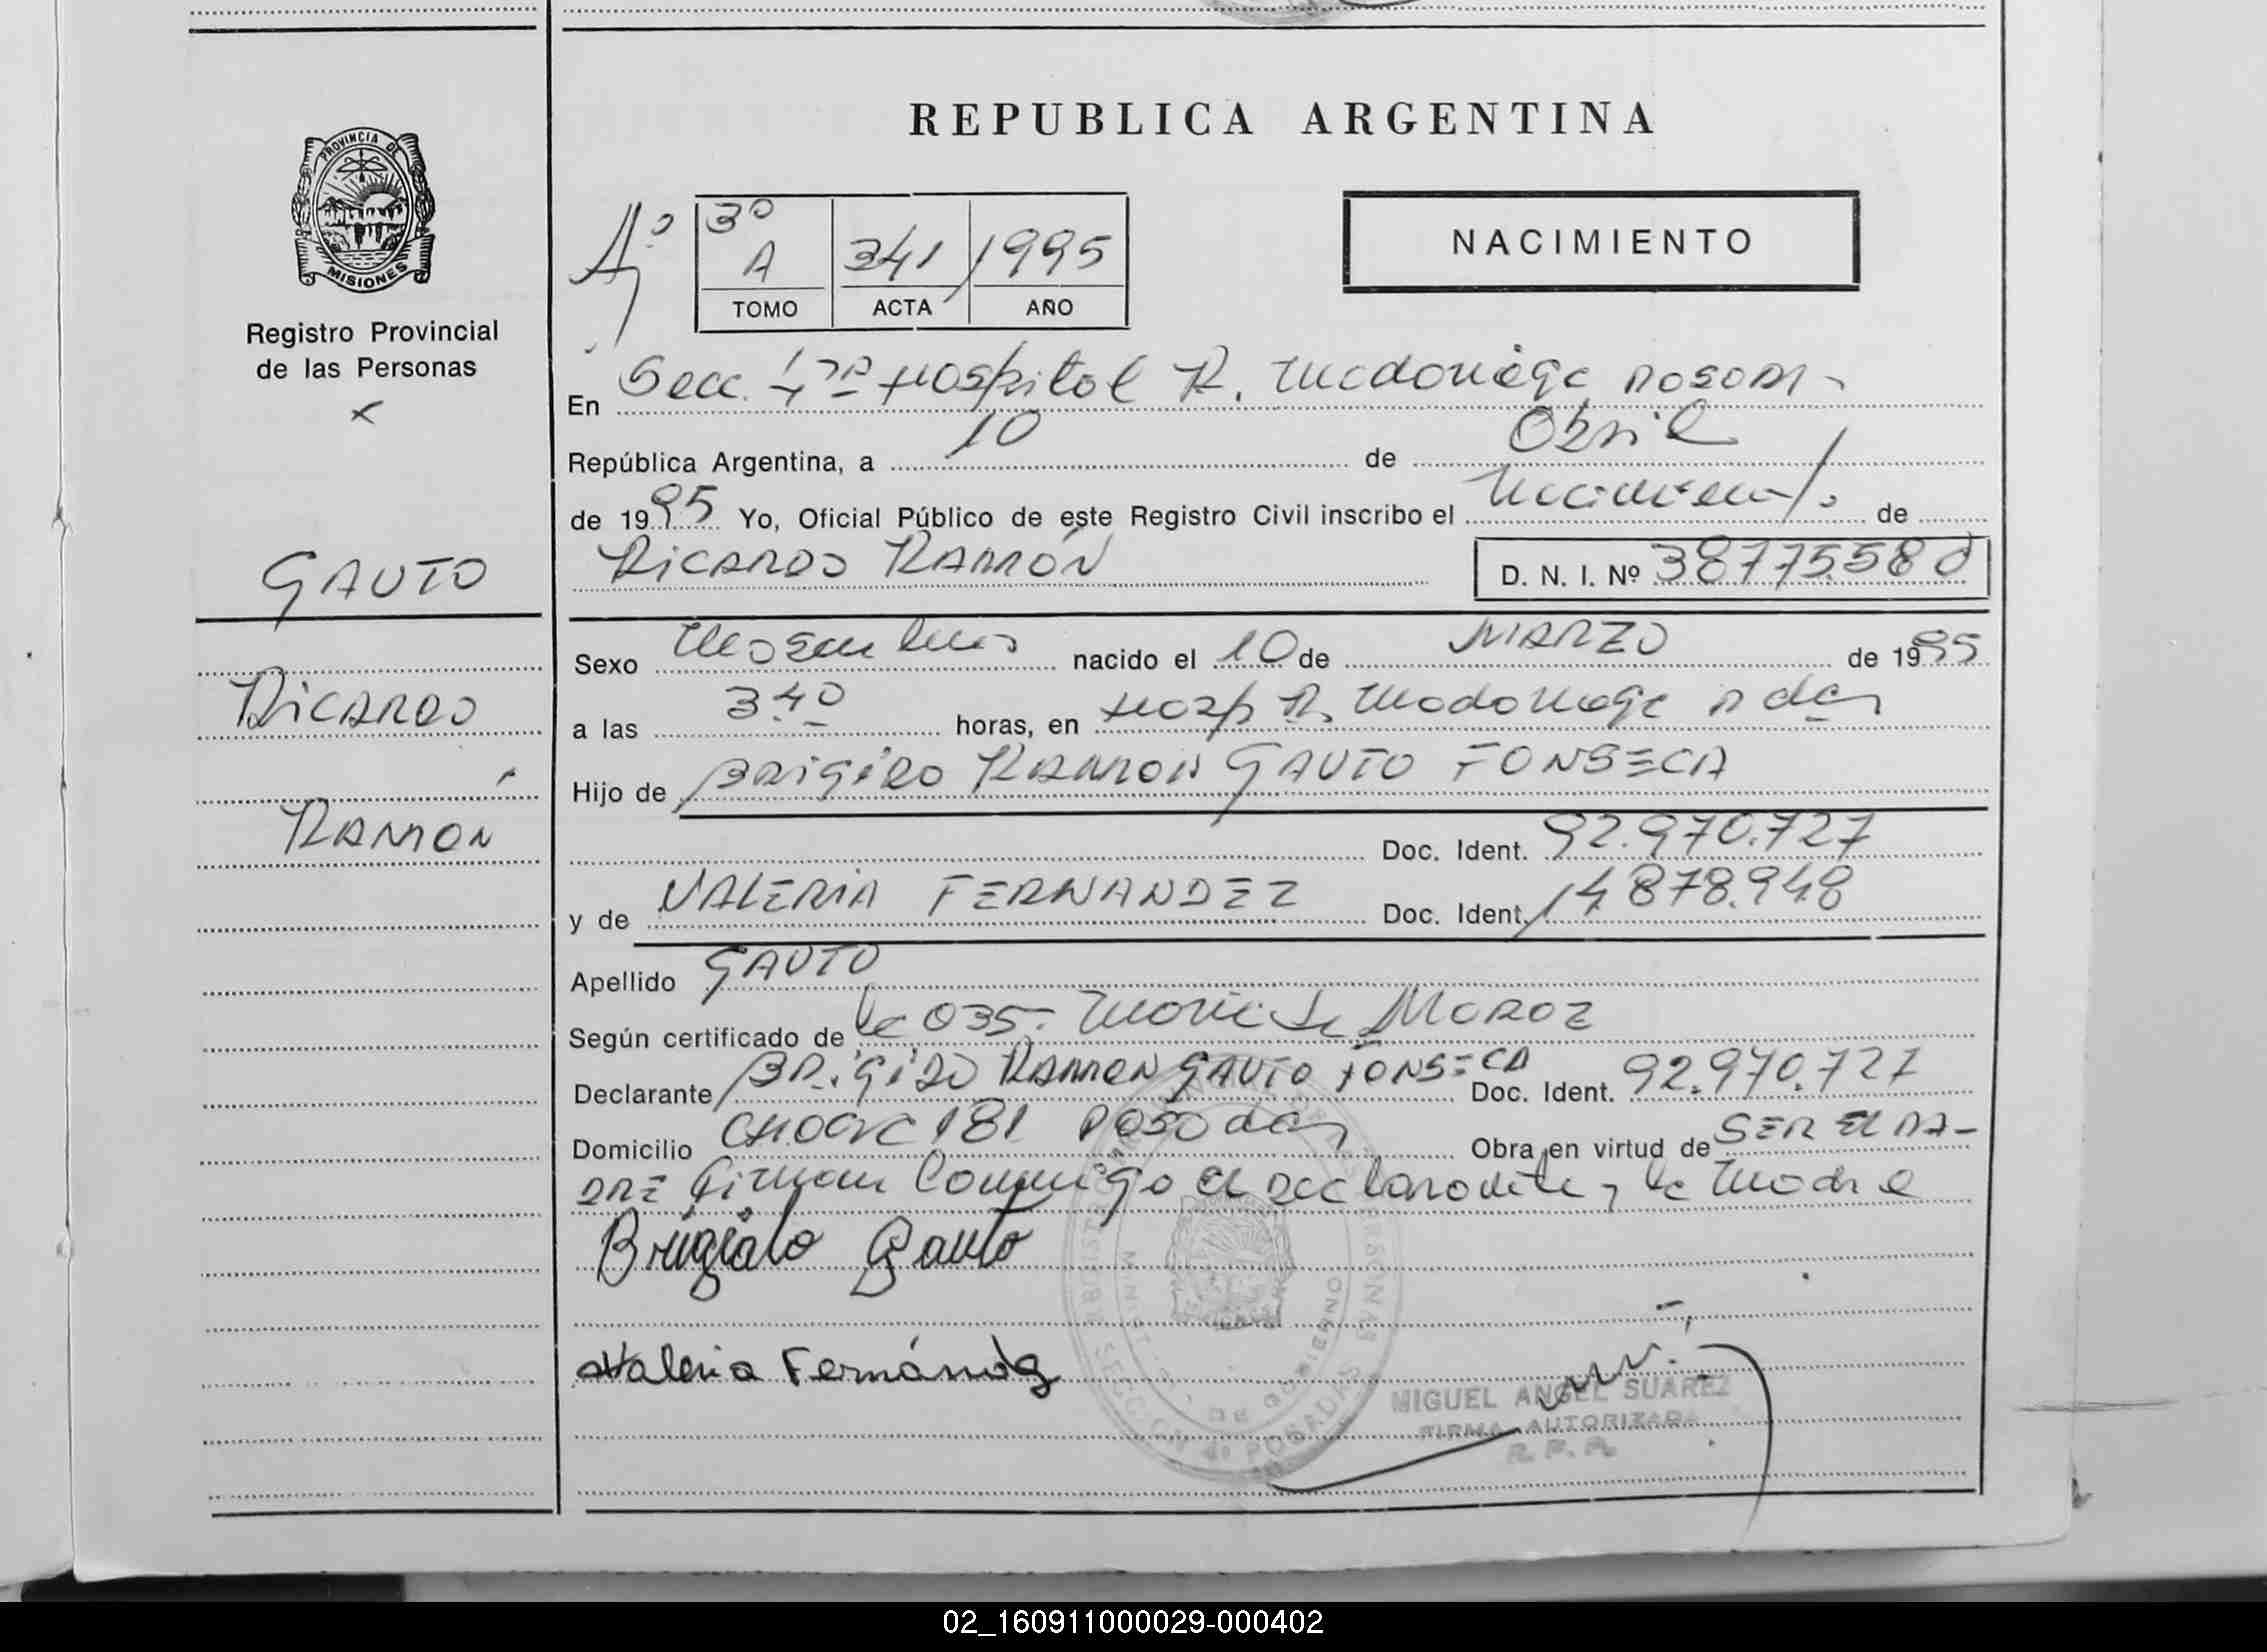 REPUBLICA ARGENTINA
PROVINCIA DE
MISIONES
Registro Provincial
de las Personas
3º
A 341 1995
TOMO ACTA AÑO
NACIMIENTO
En Secc. 4ta Hospital R. Madariaga Posadas
República Argentina, a 10 de Abril
de 1995 Yo, Oficial Público de este Registro Civil inscribo el Nacimiento de
RICARDO RAMÓN D. N. I. Nº 38.775.580
GAUTO
RICARDO
RAMON
Sexo Masculino nacido el 10 de MARZO de 1995
a las 3.40 horas, en Hosp R. Madariaga Pdas
Hijo de BRIGIDO RAMON GAUTO FONSECA
Doc. Ident. 92.970.727
y de VALERIA FERNANDEZ Doc. Ident. 14.878.948
Apellido GAUTO
Según certificado de la OBS. MOROZ
Declarante BRIGIDO RAMON GAUTO FONSECA Doc. Ident. 92.970.727
Domicilio 181 Posadas Obra en virtud de SER EL PA-
DRE Firman Conmigo el Declarante y la Madre
Brigido Gauto
Valeria Fernández
MIGUEL ANGEL SUAREZ
FIRMA AUTORIZADA
R. P. P.
SECCION 4º POSADAS
02_160911000029-000402